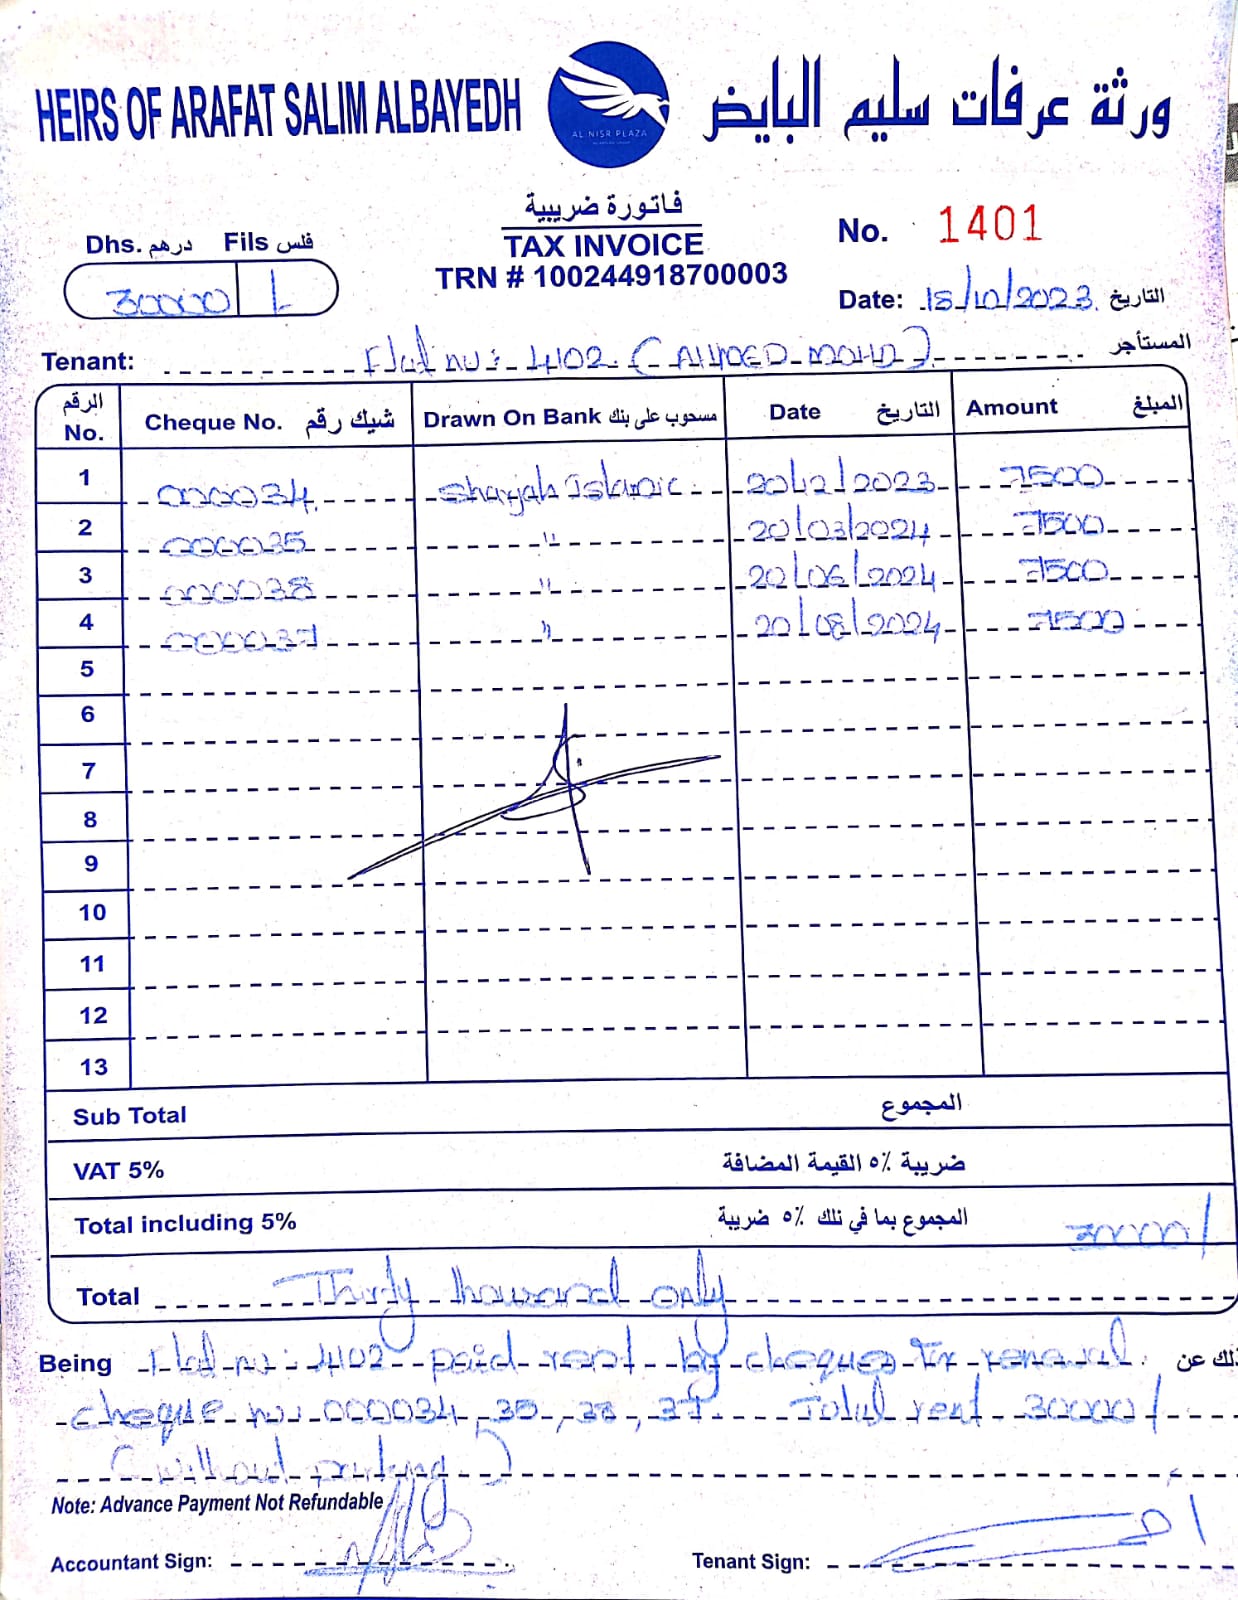 HEIRS OF ARAFAT SALIM ALBAYEDH
AL NISR PLAZA
ورثة عرفات سليم البايض
فاتورة ضريبية
TAX INVOICE
TRN # 100244918700003
No. 1401
Dhs. درهم Fils فلس
30000
Date: 15/10/2023 التاريخ
Tenant: Flat no: 1402 (AHMED MOHD) المستأجر
الرقم No. Cheque No. شيك رقم Drawn On Bank مسحوب على بنك Date التاريخ Amount المبلغ
1 000034 Sharjah Islamic 20/12/2023 7500
2 000035 " 20/03/2024 7500
3 000038 " 20/06/2024 7500
4 000037 " 20/08/2024 7500
5
6
7
8
9
10
11
12
13
Sub Total المجموع
VAT 5% ضريبة ٥٪ القيمة المضافة
Total including 5% المجموع بما في ذلك ٥٪ ضريبة 30000/
Total Thirty thousand only
Being Flat no: 1402 paid rent by cheques for renewal. ذلك عن
cheque no: 000034, 35, 38, 37 Total rent 30000/
(without parking)
Note: Advance Payment Not Refundable
Accountant Sign: Tenant Sign: